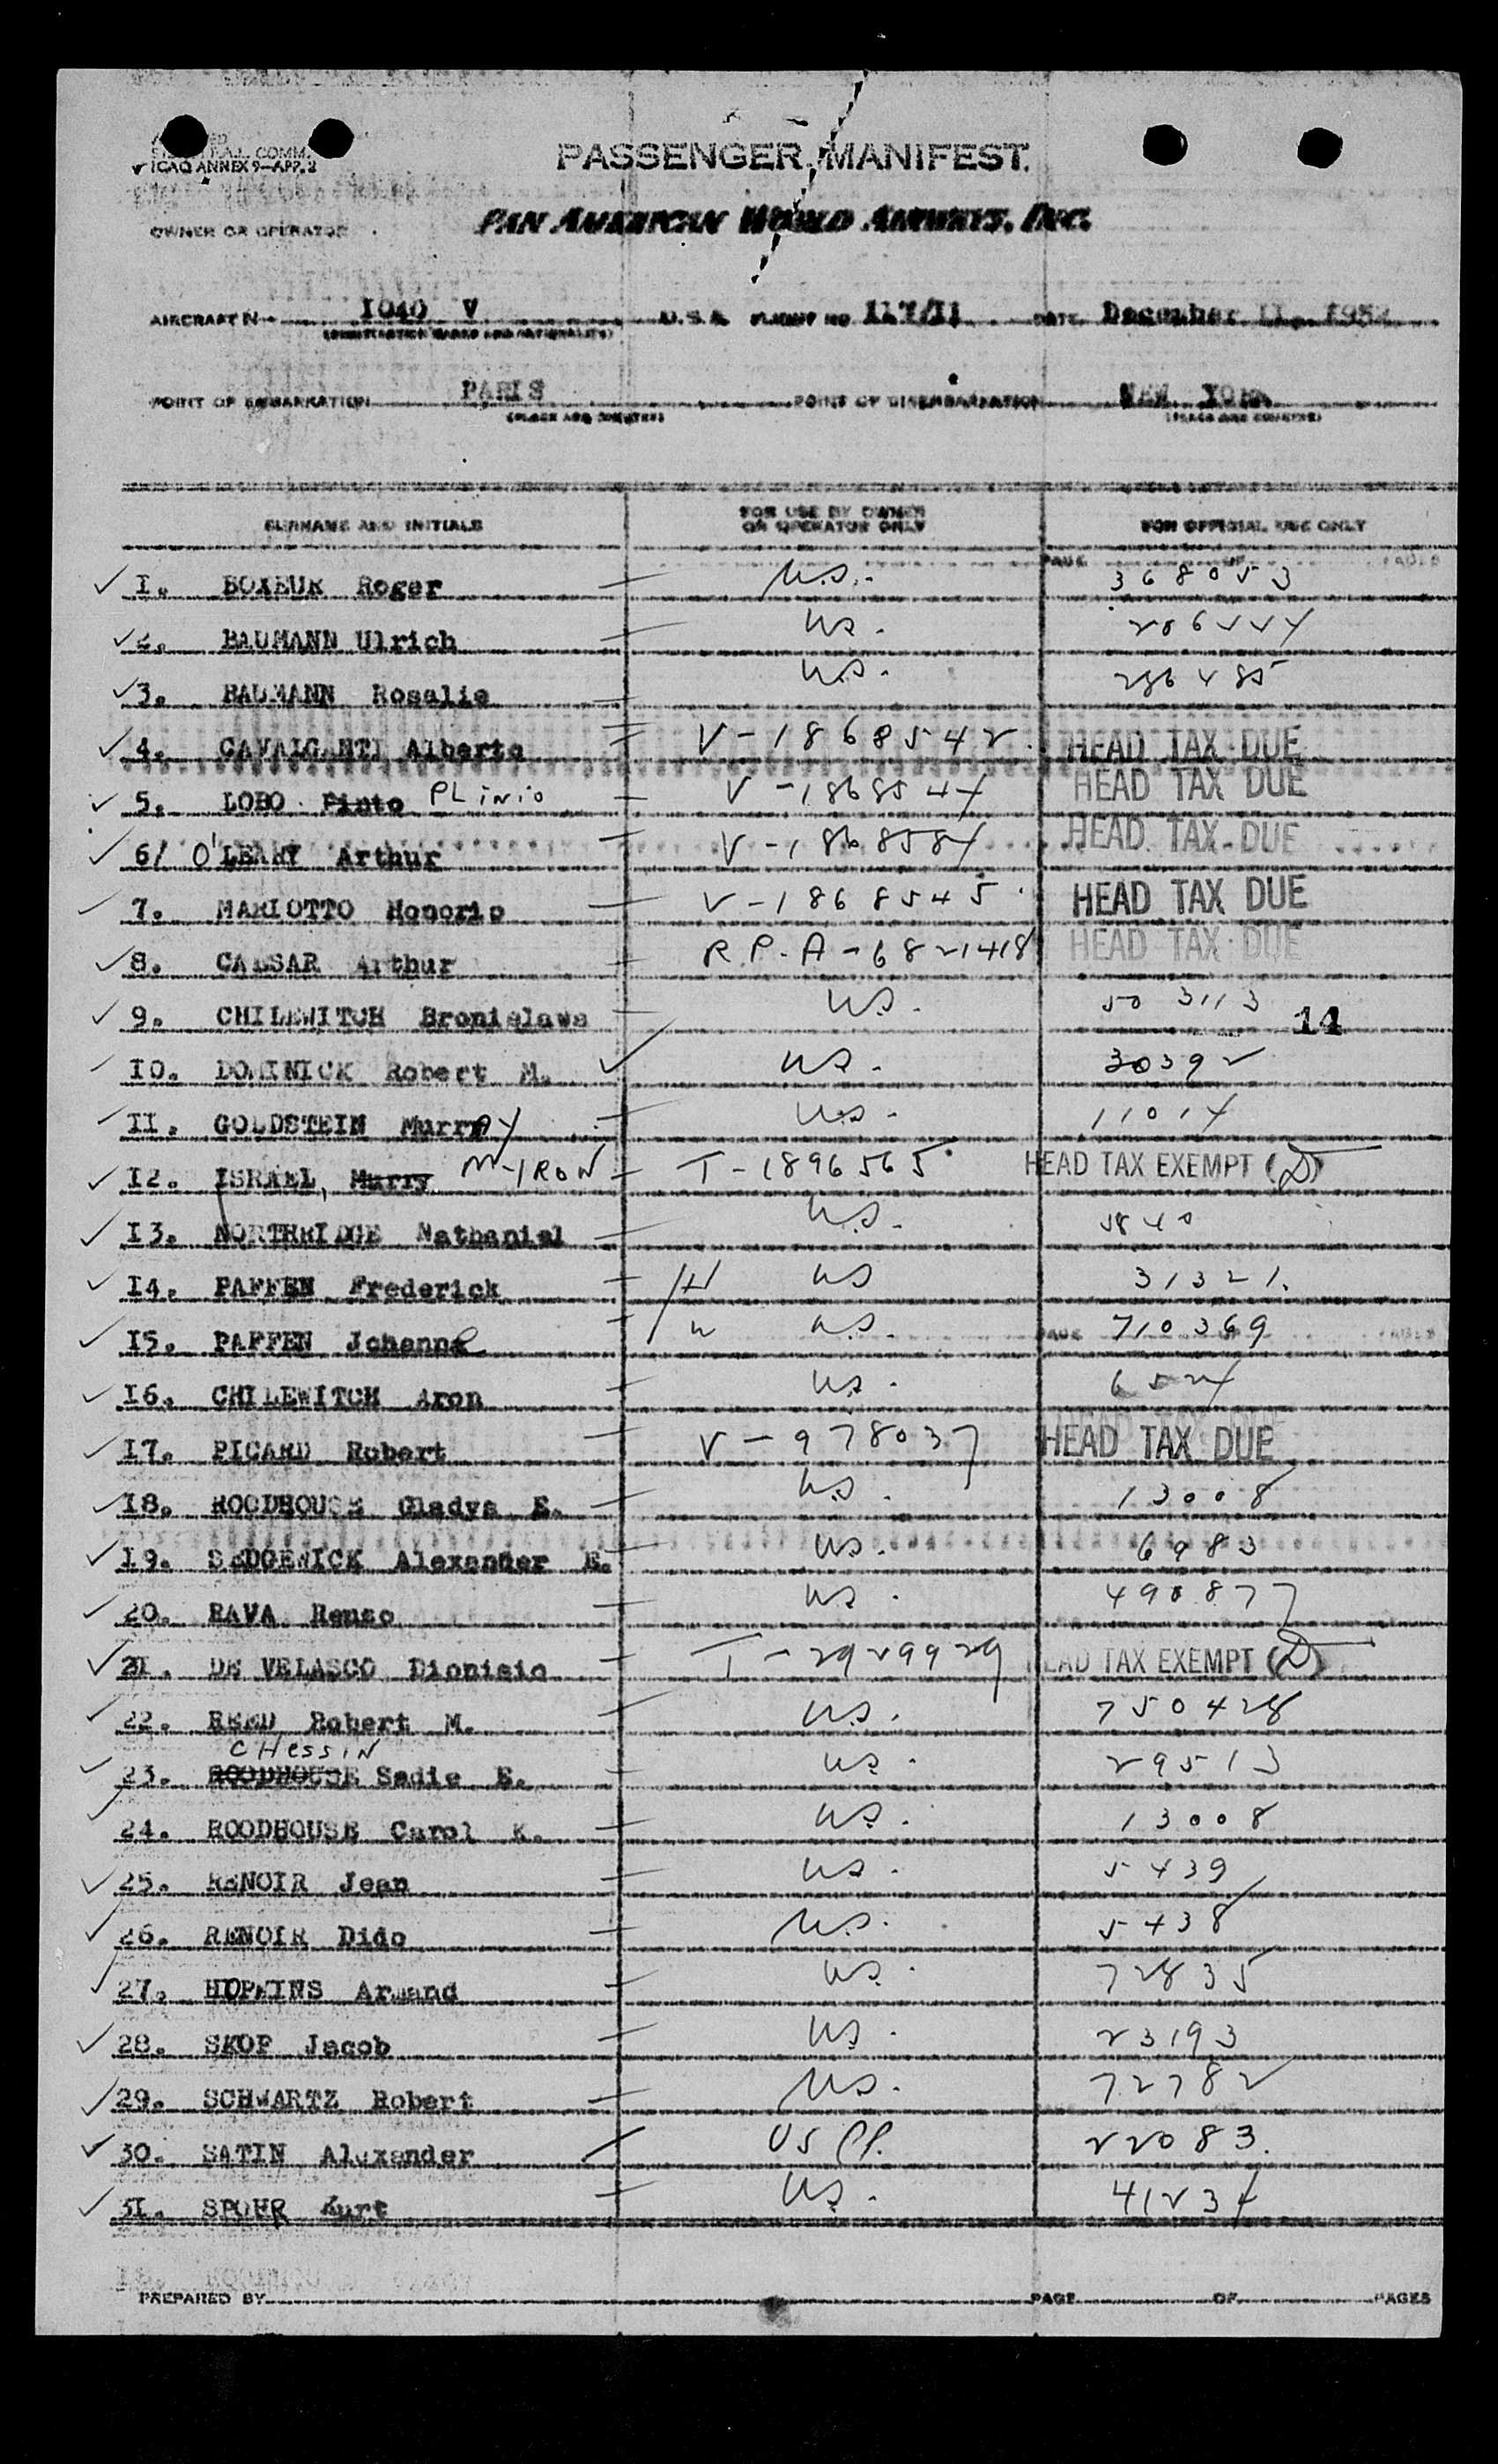 ICAO ANNEX 9—APP. 2
PASSENGER MANIFEST.
OWNER OR OPERATOR
PAN AMERICAN WORLD AIRWAYS, INC.
AIRCRAFT N 1040 V U.S.A. FLIGHT NO 117/11 DATE December 11, 1952
(IDENTIFICATION MARKS AND NATIONALITY)
POINT OF EMBARKATION PARIS POINT OF DISEMBARKATION NEW YORK
(PLACE AND COUNTRY) (PLACE AND COUNTRY)
SURNAME AND INITIALS FOR USE BY OWNER OR OPERATOR ONLY FOR OFFICIAL USE ONLY
1. BOXEUR Roger U.S. 368053
2. BAUMANN Ulrich U.S.
3. BAUMANN Rosalie U.S. 286485
4. CAVALCANTI Alberto V-1868542 HEAD TAX DUE
5. LOBO Pinto PLINIO V-1868544 HEAD TAX DUE
6/ O'LEARY Arthur V-1868584 HEAD TAX DUE
7. MARIOTTO Honorio V-1868545 HEAD TAX DUE
8. CAESAR Arthur R.P.A-6821418 HEAD TAX DUE
9. CHILEWITCH Bronislawa U.S. 503113
14
10. DOMINICK Robert M. U.S. 30392
11. GOLDSTEIN Murray U.S. 11014
12. ISRAEL, Murry MYRON T-1896565 HEAD TAX EXEMPT (D)
13. NORTHRIDGE Nathanial U.S. 5840
14. PAFFEN Frederick H US 31321.
15. PAFFEN Johanne W U.S. 710369
16. CHILEWITCH Aron U.S. 6524
17. PICARD Robert V-978037 HEAD TAX DUE
18. ROODHOUSE Gladys E. U.S. 13008
19. SEDGEWICK Alexander E. U.S. 6983
20. RAVA Renzo U.S. 490877
21. DE VELASCO Dionisio T-2929929 HEAD TAX EXEMPT (D)
22. REED Robert M. U.S. 750428
CHESSIN
23. ROODHOUSE Sadie E. U.S. 29513
24. ROODHOUSE Carol K. U.S. 13008
25. RENOIR Jean U.S. 5439
26. RENOIR Dido U.S. 5438
27. HOPKINS Armand U.S. 72835
28. SKOF Jacob U.S. 23193
29. SCHWARTZ Robert U.S. 72782
30. SATIN Alexander US PP. 22083.
31. SPOHR Kurt U.S. 41234
PREPARED BY PAGE OF PAGES